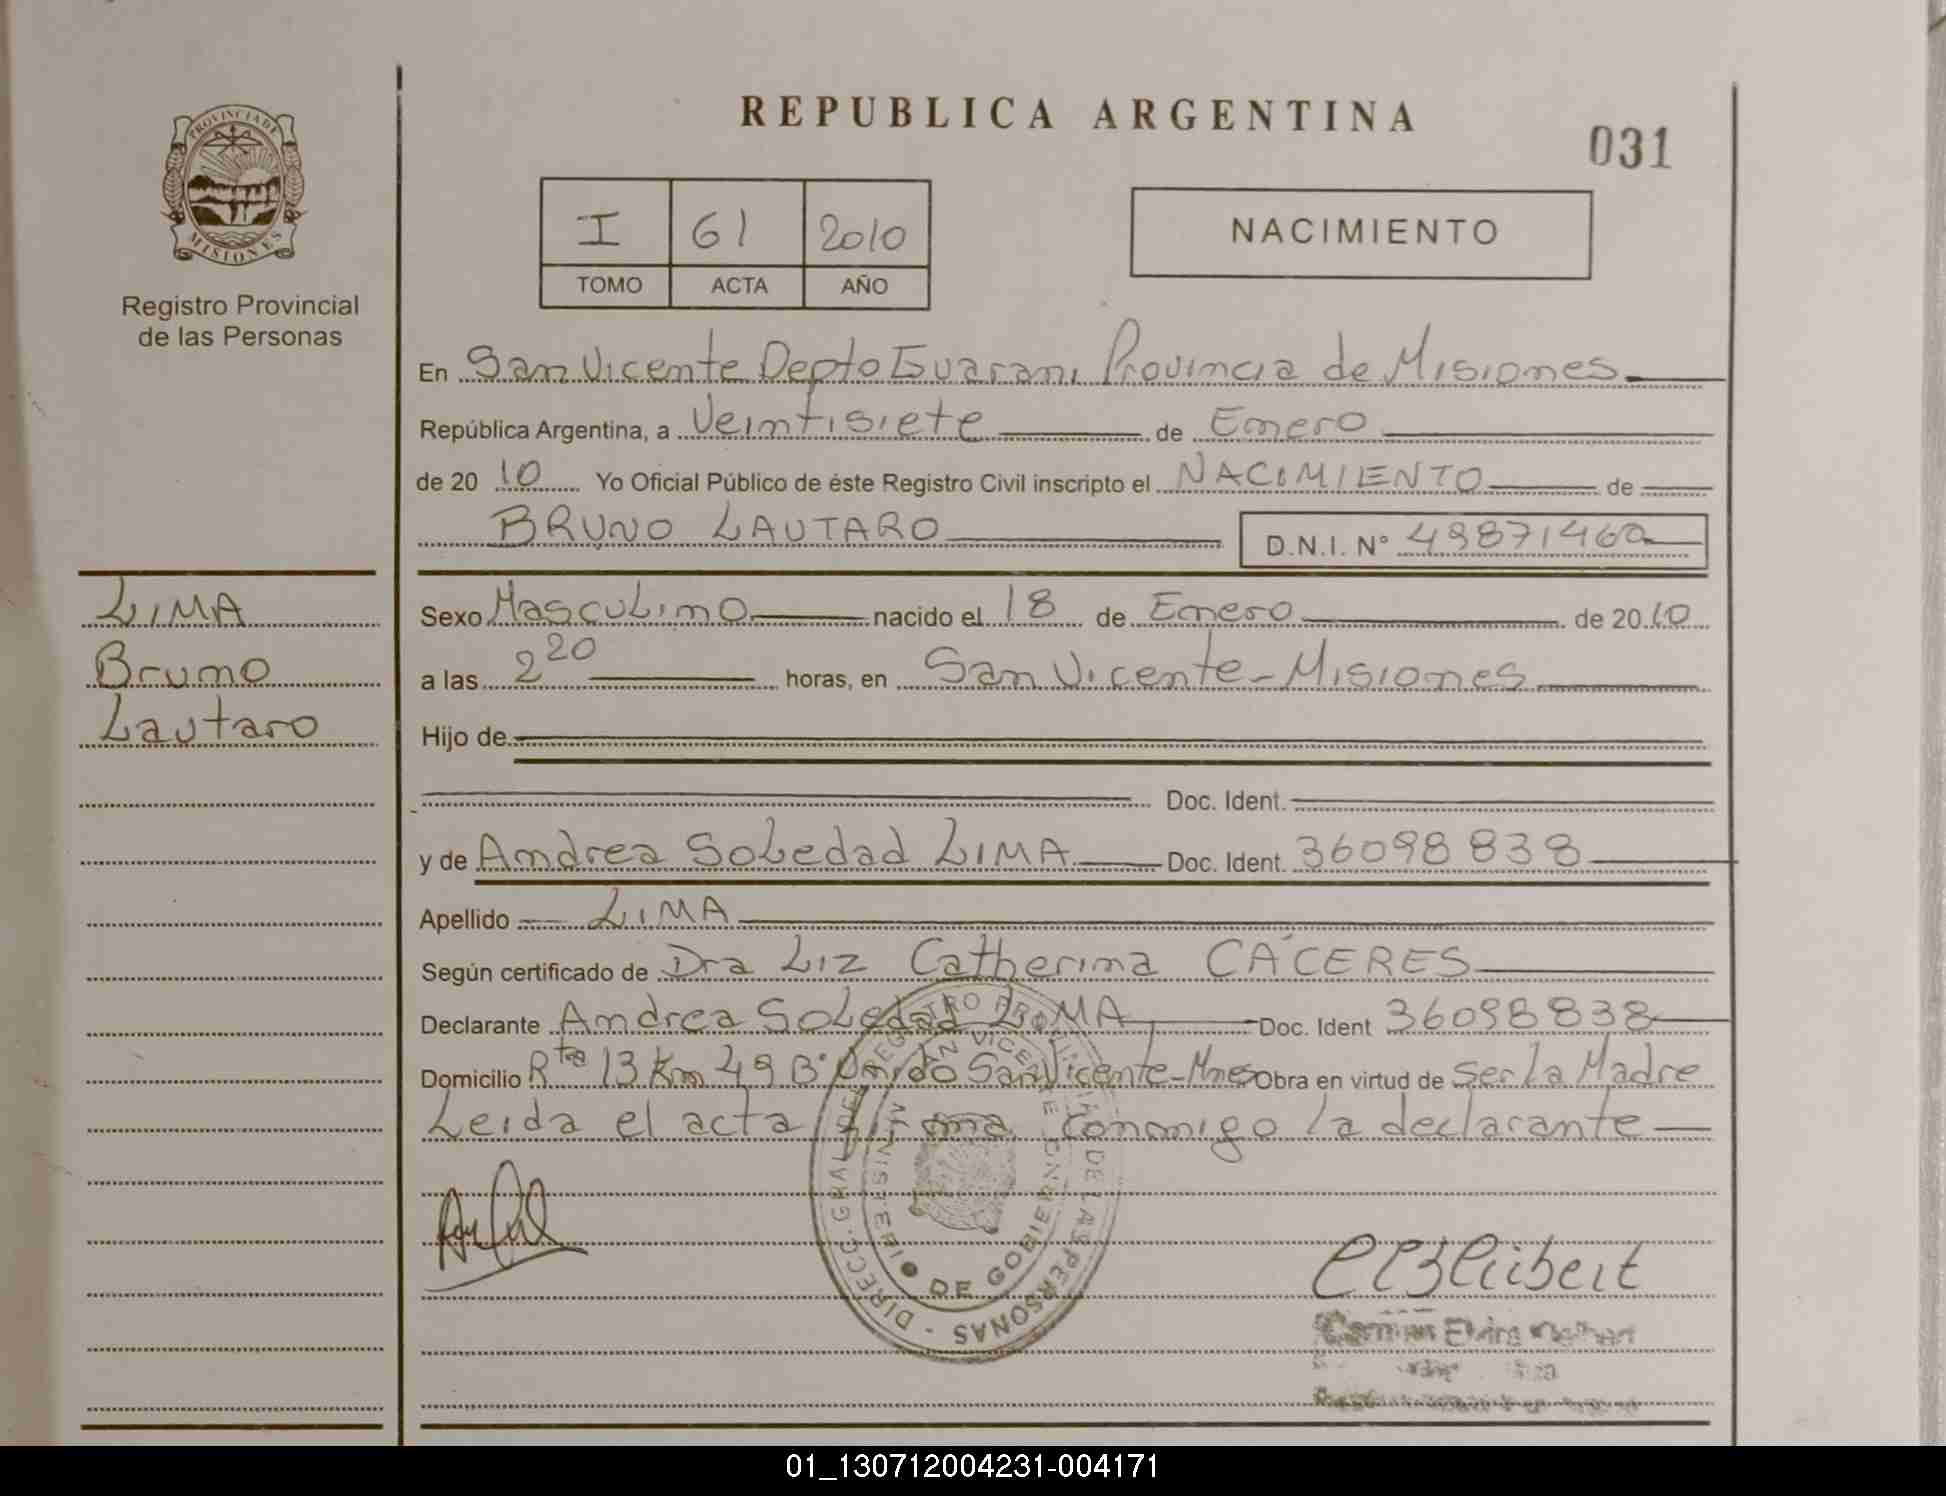 REPUBLICA ARGENTINA
031
PROVINCIA DE
MISIONES
Registro Provincial
de las Personas
I 61 2010
TOMO ACTA AÑO
NACIMIENTO
En San Vicente Depto Guarani Provincia de Misiones
República Argentina, a Veintisiete de Enero
de 20 10 Yo Oficial Público de éste Registro Civil inscripto el NACIMIENTO de
BRUNO LAUTARO D.N.I. Nº 49871460
LIMA
Bruno
Lautaro
Sexo Masculino nacido el 18 de Enero de 20 10
a las 2 20 horas, en San Vicente - Misiones
Hijo de
Doc. Ident.
y de Andrea Soledad LIMA Doc. Ident. 36098838
Apellido LIMA
Según certificado de Dra Liz Catherina CÁCERES
Declarante Andrea Soledad LIMA Doc. Ident 36098838
Domicilio Rta 13 Km 49 Bº Unido San Vicente - Mnes Obra en virtud de Ser la Madre
Leida el acta firma conmigo la declarante
DIRECC. GRAL. DEL REGISTRO PROVINCIAL DE LAS PERSONAS
SAN VICENTE
MINISTERIO DE GOBIERNO
01_130712004231-004171